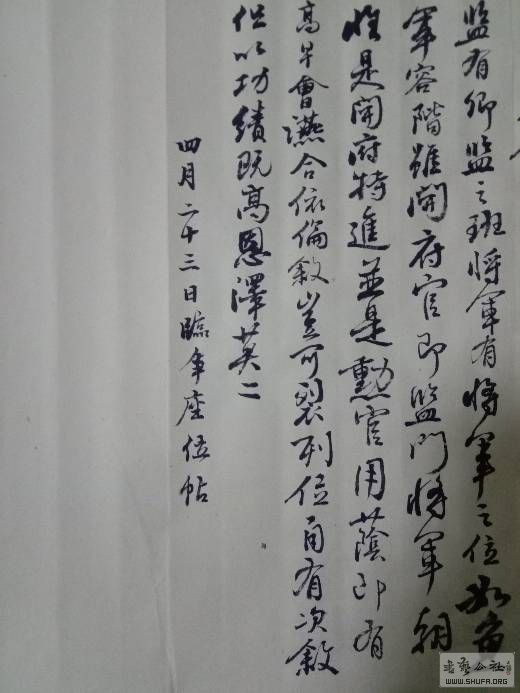 监有卿监之班将军有将军之位如鱼
军容階雖開府官即监門将軍朝
惟是開府特進並是勲官用蔭即有
高卑會讌合依倫敘豈可裂列位自有次敘
但以功績既高恩澤莫二
四月二十三日臨争座位帖
書藝公社
WWW.SHUFA.ORG